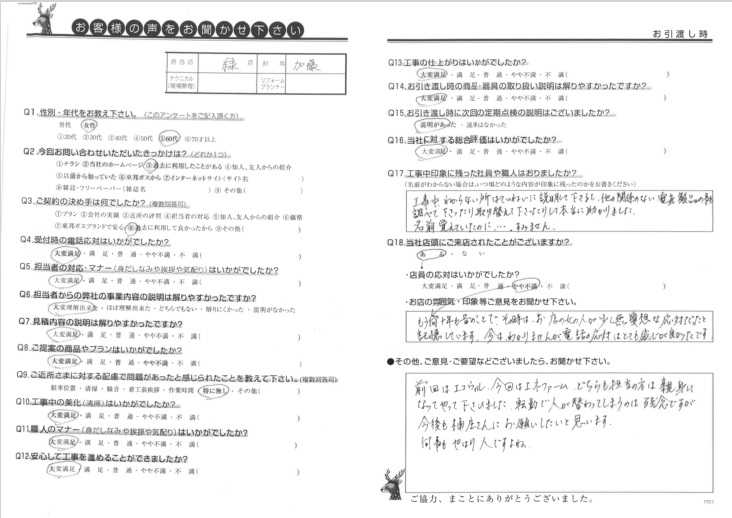 お客様の声をお聞かせ下さい
担当店 緑店 担当 加藤
テクニカル(現場管理) リフォームプランナー
Q1.性別・年代をお教え下さい。(このアンケートをご記入頂く方)
男性 女性
①20代 ②30代 ③40代 ④50代 ⑤60代 ⑥70才以上
Q2.今回お問い合わせいただいたきっかけは?(どれか1つ)
①チラシ ②当社のホームページ ③過去に利用したことがある ④知人、友人からの紹介
⑤以前から知っていた ⑥東邦ガスから ⑦インターネットサイト(サイト名 )
⑧雑誌・フリーペーパー(雑誌名 ) ⑨その他( )
Q3.ご契約の決め手は何でしたか?(複数回答可)
①プラン ②会社の実績 ③近所の評判 ④担当者の対応 ⑤知人、友人からの紹介 ⑥価格
⑦東邦ガスブランドで安心 ⑧過去に利用して良かったから ⑨その他( )
Q4.受付時の電話応対はいかがでしたか?
大変満足・満 足・普 通・やや不満・不 満( )
Q5.担当者の対応・マナー(身だしなみや挨拶や気配り)はいかがでしたか?
大変満足・満 足・普 通・やや不満・不 満( )
Q6.担当者からの弊社の事業内容の説明は解りやすかったですか?
大変理解出来た・ほぼ理解出来た・どちらでもない・解りにくかった・説明がなかった
Q7.見積内容の説明は解りやすかったですか?
大変満足・満 足・普 通・やや不満・不 満( )
Q8.ご提案の商品やプランはいかがでしたか?
大変満足・満 足・普 通・やや不満・不 満( )
Q9.ご近所さまに対する配慮で問題があったと感じられたことを教えて下さい。(複数回答可)
駐車位置・清掃・騒音・着工前挨拶・作業時間 特に無し・その他( )
Q10.工事中の美化(清掃)はいかがでしたか?
大変満足・満 足・普 通・やや不満・不 満( )
Q11.職人のマナー(身だしなみや挨拶や気配り)はいかがでしたか?
大変満足・満 足・普 通・やや不満・不 満( )
Q12.安心して工事を進めることができましたか?
大変満足・満 足・普 通・やや不満・不 満( )
お引渡し時
Q13.工事の仕上がりはいかがでしたか?
大変満足・満 足・普 通・やや不満・不 満( )
Q14.お引き渡し時の商品・器具の取り扱い説明は解りやすかったですか?
大変満足・満 足・普 通・やや不満・不 満( )
Q15.お引き渡し時に次回の定期点検の説明はございましたか?
説明があった・説明はなかった
Q16.当社に対する総合評価はいかがでしたか?
大変満足・満 足・普 通・やや不満・不 満( )
Q17.工事中印象に残った社員や職人はおりましたか?
(名前がわからない場合はいつ頃どのような内容が印象に残ったのかをお書きください)
工事中わからない所はていねいに説明して下さるし、他の関係のない電気製品の事
調べて下さったり取り替えて下さったりして本当に助かりました。
名前覚えていたのに…、すみません。
Q18.当社店頭にご来店されたことがございますか?
ある ない
・店員の応対はいかがでしたか?
大変満足・満 足・普 通・やや不満・不 満( )
・お店の雰囲気・印象等ご意見をお聞かせ下さい。
もう何十年も昔のことで、当時は、お店の女の人が少し無愛想な応対だったと
記憶しています。今はわかりませんが電話の応対はとても感じが良かったです
●その他、ご意見・ご要望などございましたら、お聞かせ下さい。
前回はエコウィル、今回はエネファーム どちらも担当の方は親身に
なってやって下さいました。転勤で人が替わってしまうのは残念ですが
今後も桶庄さんにお願いしたいと思います。
何事もやはり人ですよね。
ご協力、まことにありがとうございました。